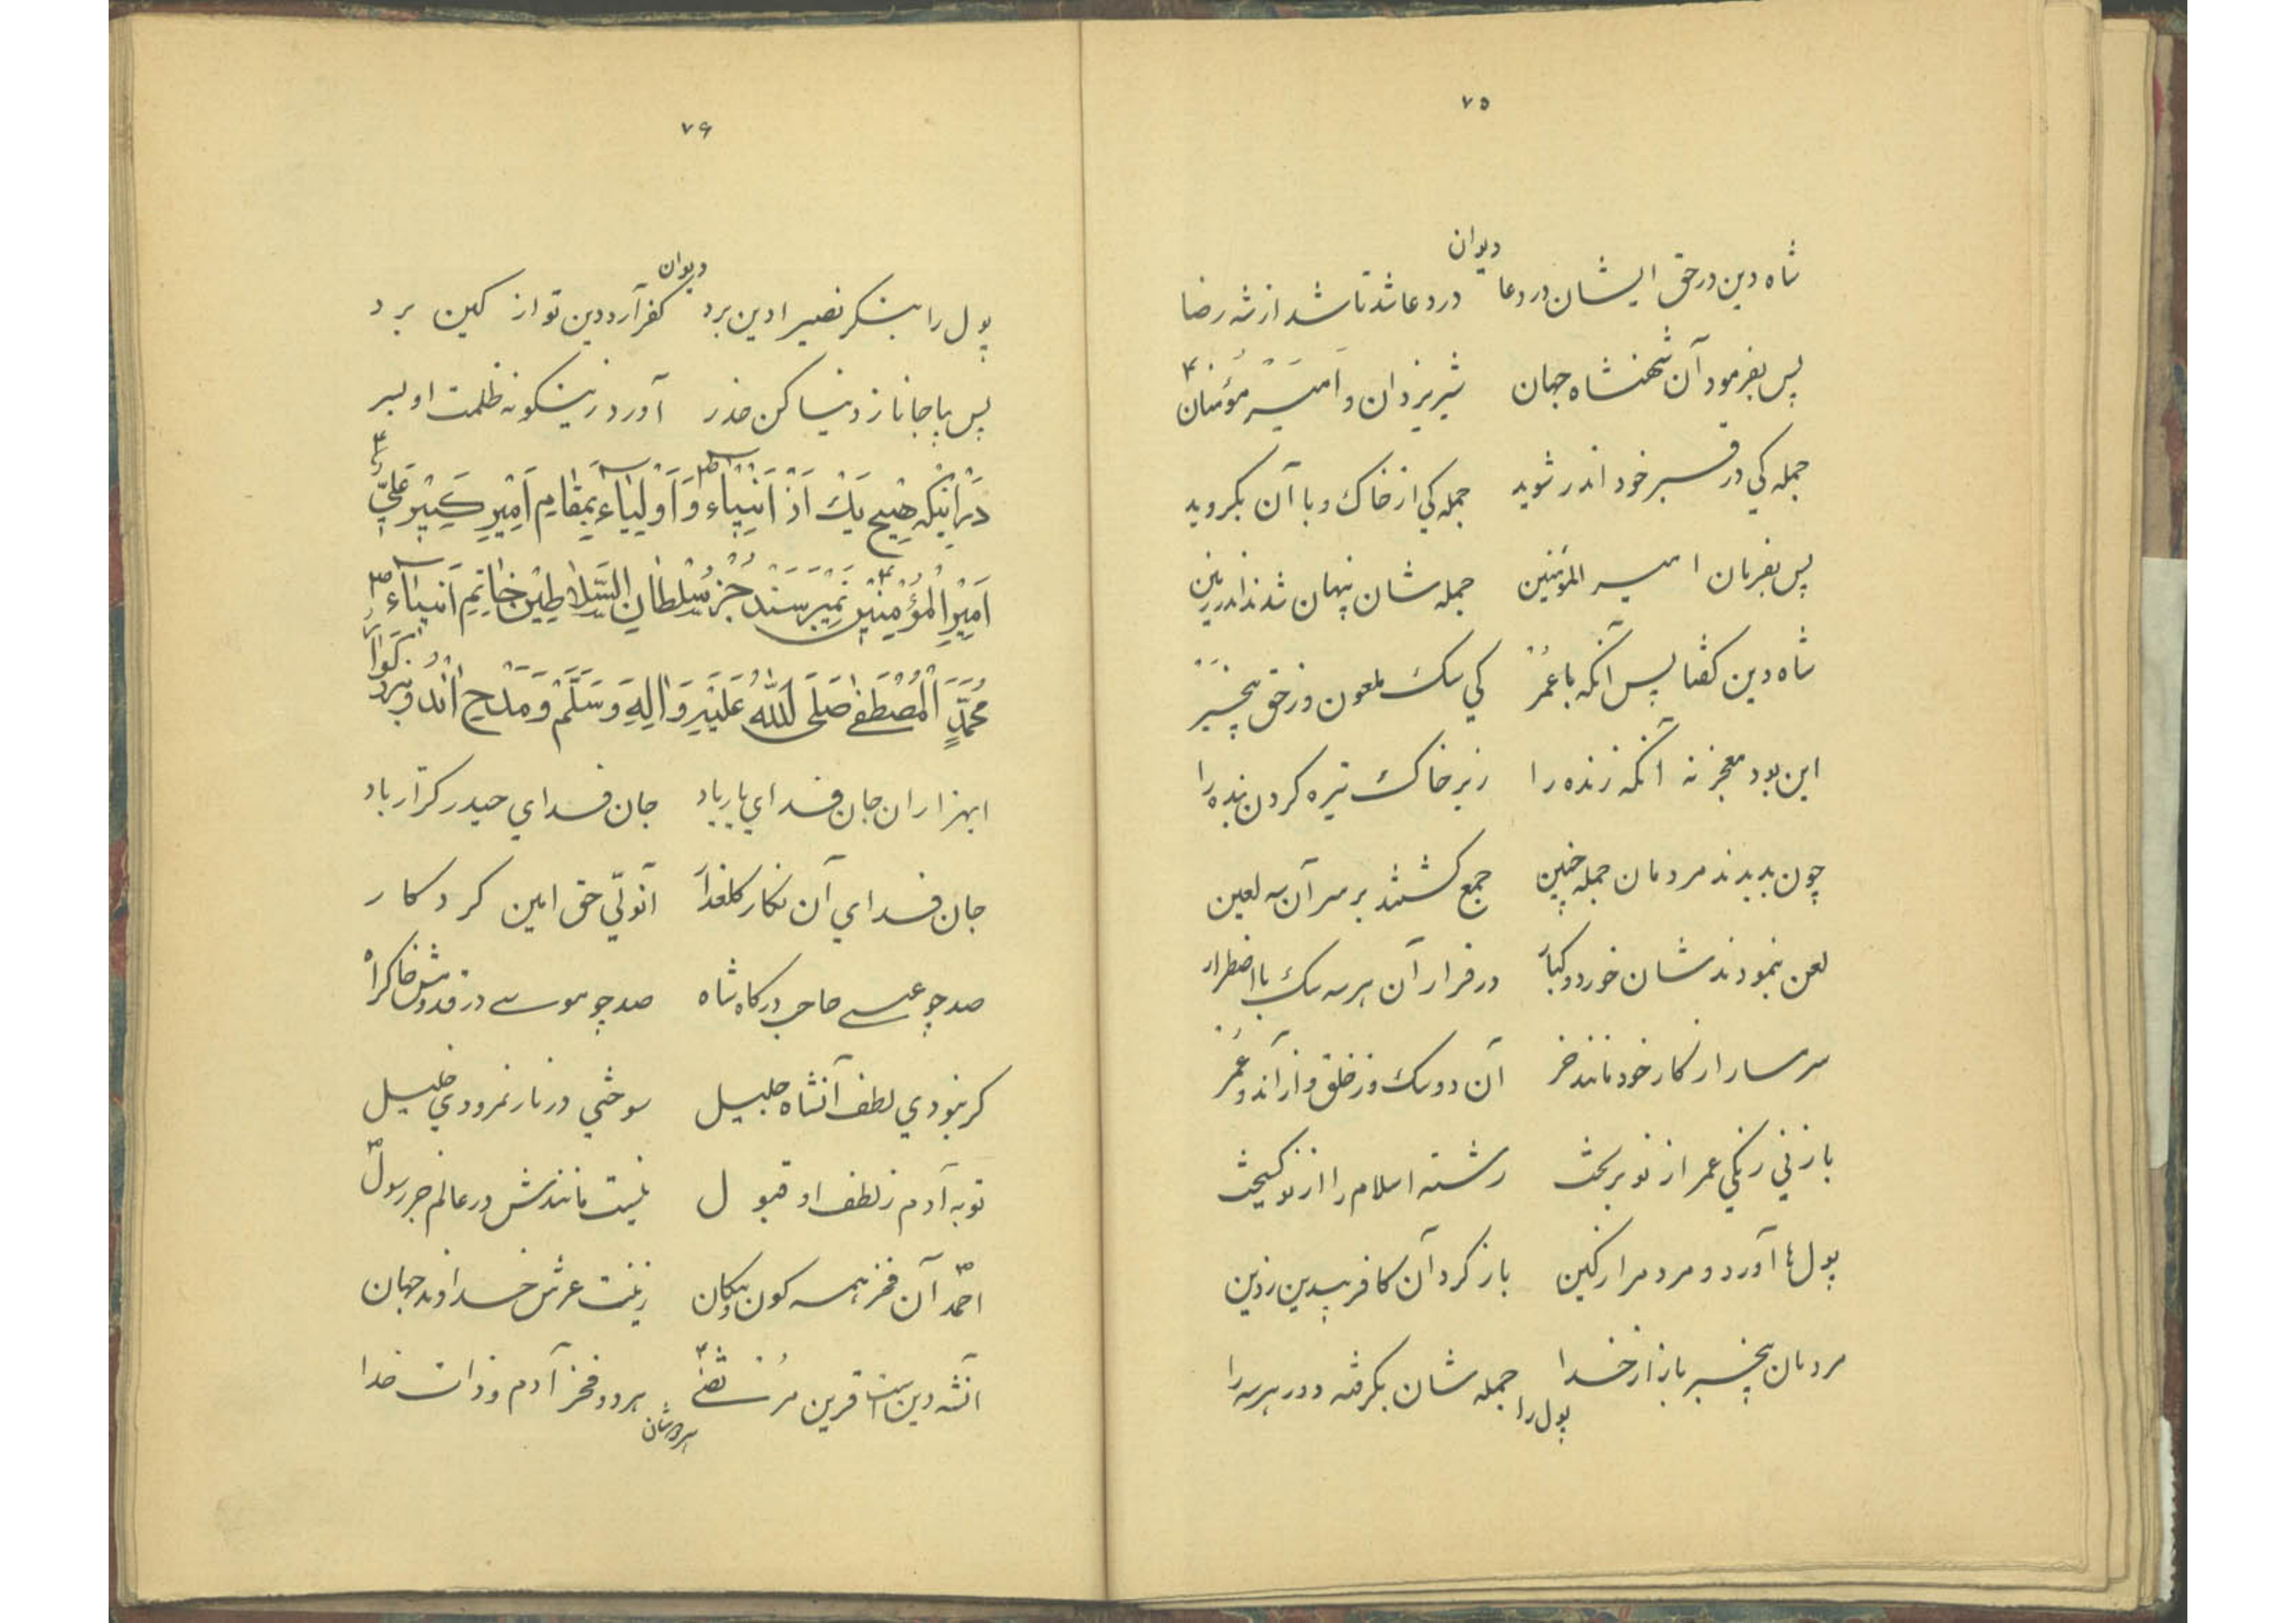 ۷۵
دیوان
شاه دین در حق ایشان در دعا در دعا شد تا شد از شه رضا
پس بفرمود آن شهنشاه جهان شیر یزدان و امیر مؤمنان
جمله کي در قبر خود اندر شوید جمله کي از خاک و با آن بگروید
پس بفرمان امیر المؤمنین جمله شان پنهان شدند اندر زمین
شاه دین گفتا پس آنگه با عمر کي سگ ملعون و زحق بیخبر
این بود معجز نه آنکه زنده را زیر خاک تیره کردن بنده را
چون بدیدند مردمان جمله چنین جمع گشتند بر سر آن سه لعین
لعن بنمودند شان خورد و کبار در فرار آن هر سه سگ با اضطرار
سرسار از کار خود مانند خر آن دو سگ وز خلق و از آندو عمر
باز ني رنگي عمر از نو بریخت رشته اسلام را از نو گسیخت
پول ها آورد و مردم را ز کین باز کرد آن کافر بیدین ز دین
مردمان بیخبر باز از خدا جمله شان بگرفته و در هر سه را
پول را
۷۶
دیوان
پول را بنگر نصیرا دین برد کفر آرد دین تو از کین برد
پس بپا جانا ز دنیا کن حذر آورد زینگونه ظلمت او بسر
دَر اینکه هیچ یَک اَز اَنبیاء وَ اَولیاء بمقام اَمیر کَبیر عَلیّ
اَمیرِ الْمُؤمِنین نمیرَسَند جُز سُلطانِ السَّلاطین خاتمِ اَنبیاء
مُحَمَّدٍ الْمُصْطَفٰی صَلَّی اللّٰه عَلَیْهِ وَ اٰلِهِ وَسَلَّم وَ مَدْحِ اٰن دُو بزرگوار
ایهزاران جان فدای یار باد جان فدای حیدر کرّار باد
جان فدای آن نگار گلعذار آنولّي حق امین کردگار
صد چو عیسے حاجب درگاه شاه صد چو موسے در قدومش خاکراه
گر نبودي لطف آنشاه جلیل سوختي در نار نمرودي خلیل
توبه آدم ز لطف او قبول نیست مانندش در عالم جز رسول
احمّد آن فخر همه کون و مکان زینت عرش خداوند جهان
آنشه دین است قرین مرتضےٰ هر دو فخر آدم و ذات خدا
هردوشان